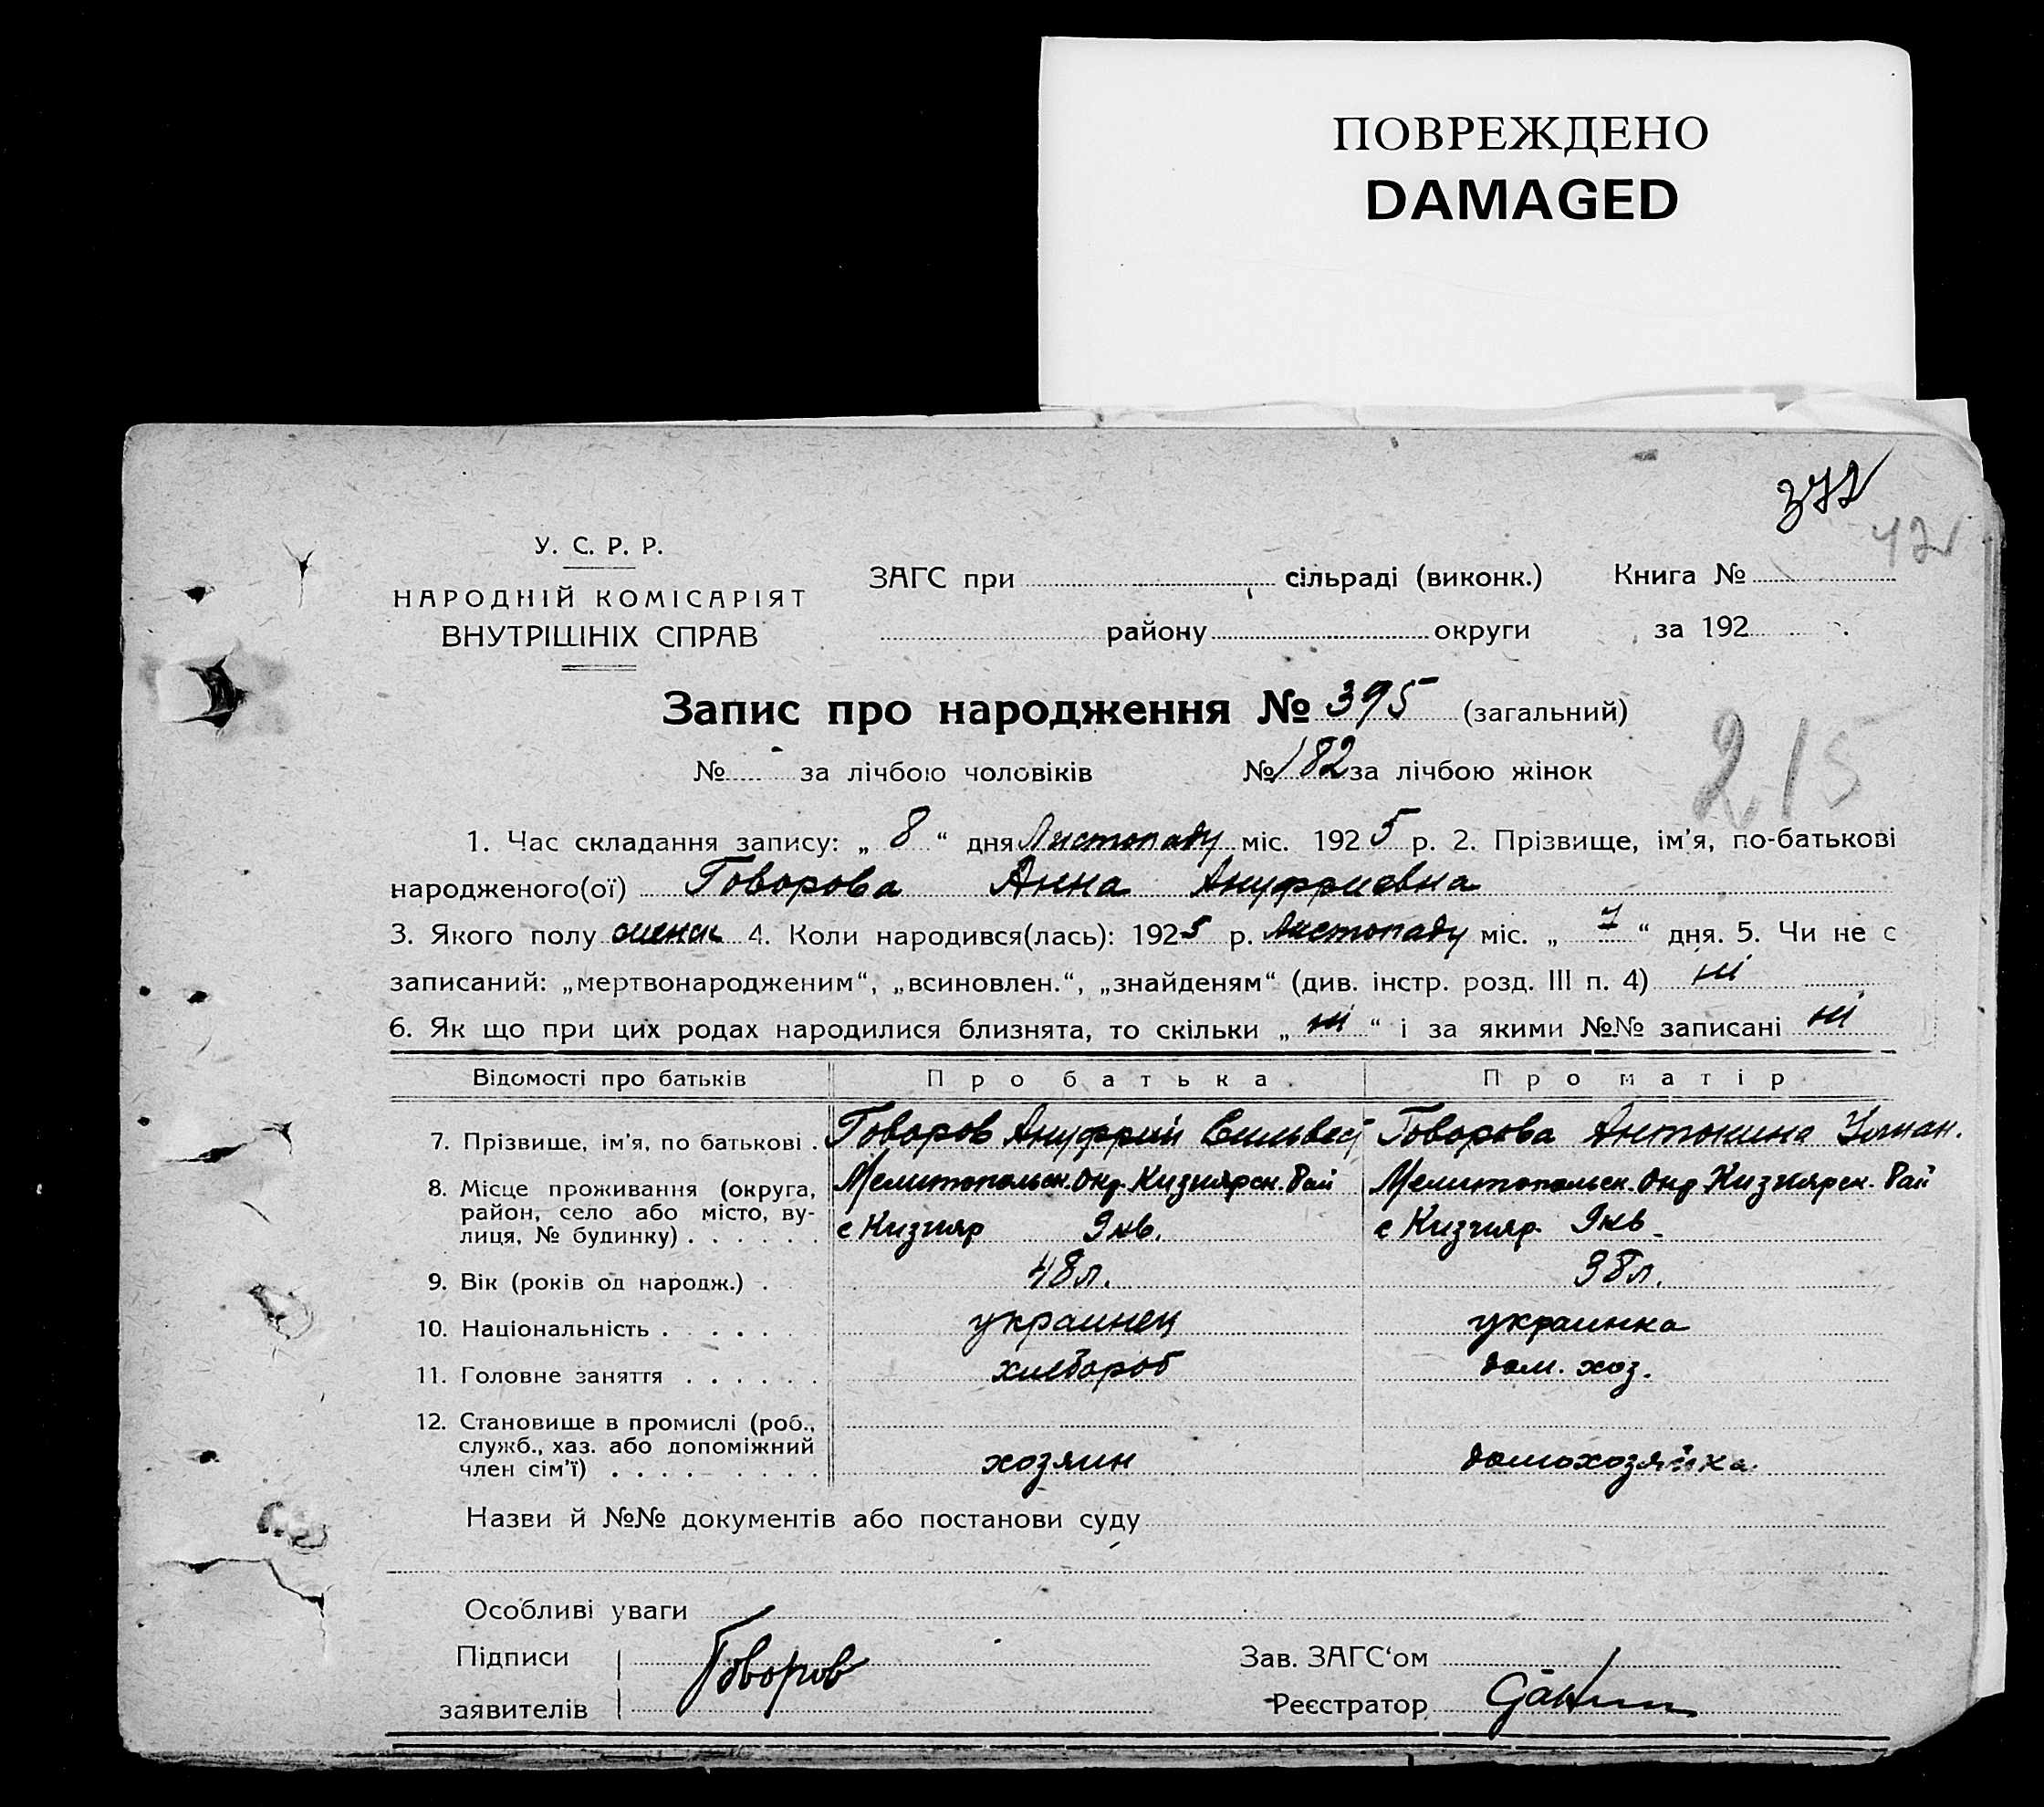 ПОВРЕЖДЕНО
DAMAGED
372
У. С. Р. Р.
НАРОДНІЙ КОМІСАРІЯТ
ВНУТРІШНІХ СПРАВ
ЗАГС при сільраді (виконк.) Книга №
району округи за 192 .
Запис про народження № 395 (загальний)
№ - за лічбою чоловіків № 182 за лічбою жінок
215
1. Час складання запису: „ 8 “ дня Листопаду міс. 192 5 р. 2. Прізвище, ім'я, по-батькові
народженого(ої) Говорова Анна Ануфриевна
3. Якого полу женск 4. Коли народився(лась): 192 5 р. Листопаду міс. „ 7 “ дня. 5. Чи не є
записаний: „мертвонародженим“, „всиновлен.“, „знайденям“ (див. інстр. розд. III п. 4) ні
6. Як що при цих родах народилися близнята, то скільки „ ні “ і за якими №№ записані ні
Відомості про батьків Про батька. Про матір
7. Прізвище, ім'я, по батькові . Говоров Ануфрий Сильвест Говорова Антонина
8. Місце проживання (округа, район, село або місто, вулиця, № будинку) Мелитопольск. Окр. Кизиярск. Рай Мелитопольск. Окр Кизиярск. Рай
с Кизияр с Кизияр
9. Вік (років од народж.) . 48 л. 38 л.
10. Національність украинец украинка
11. Головне заняття хлебороб дом. хоз.
12. Становище в промислі (роб., служб., хаз. або допоміжний член сім'ї) хозяин домохозяйка
Назви й №№ документів або постанови суду
Особливі уваги
Підписи заявителів Говоров Зав. ЗАГС'ом
Реєстратор